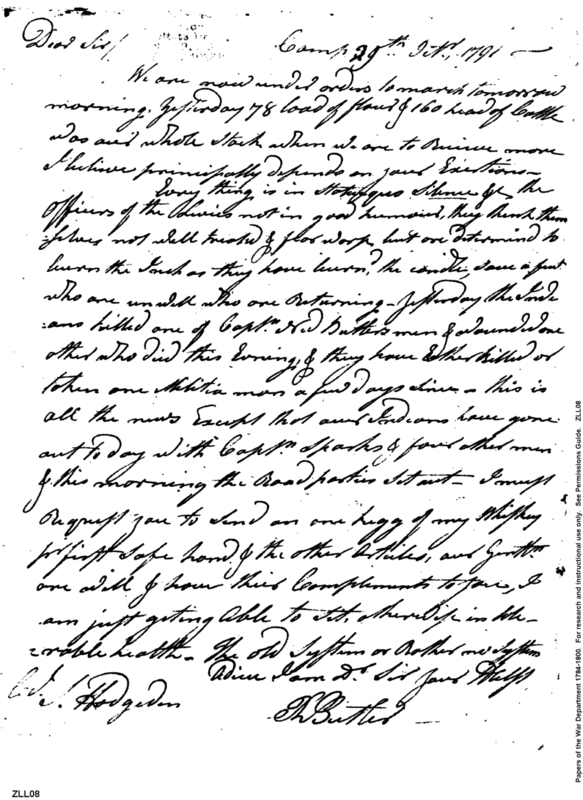 Dear Sir/
Camp 29th Octr 1791 —
We are now under orders to march tomorrow
morning. Yesterday 78 load of flour & 160 head of Cattle
was our whole Stock when we are to Receive more
I believe principally depends on your Exertions —
Every thing is in Silence & the
officers of the Levies not in good humour, they think them
selves not well treated & fear worse, but are determind to
burn the Inch as they have burnd the candle, save a few
who are unwell who are Returning — Yesterday the Indi
:ans killed one of Captn Ned Butlers men & wounded one
other who died this Evening, & they have Either killed or
taken one Militia man a few days since — this is
all the news Except that our Indians have gone
out to day with Captn Sparks & four other men
& this morning the Road parties Set out — I must
Request you to Send on one kegg of my Whiskey
pr first Safe hand & the other articles, our Gentln
are well & have their Complements to you, I
am just geting Able to Sit, otherwise in tole-
:rable health — The old System or Rather no System
Adieu I am Dr Sir your
Col. S. Hodgdon
Rd Butler
ZLL08
Papers of the War Department 1784-1800. For research and instructional use only. See Permissions Guide. ZLL08